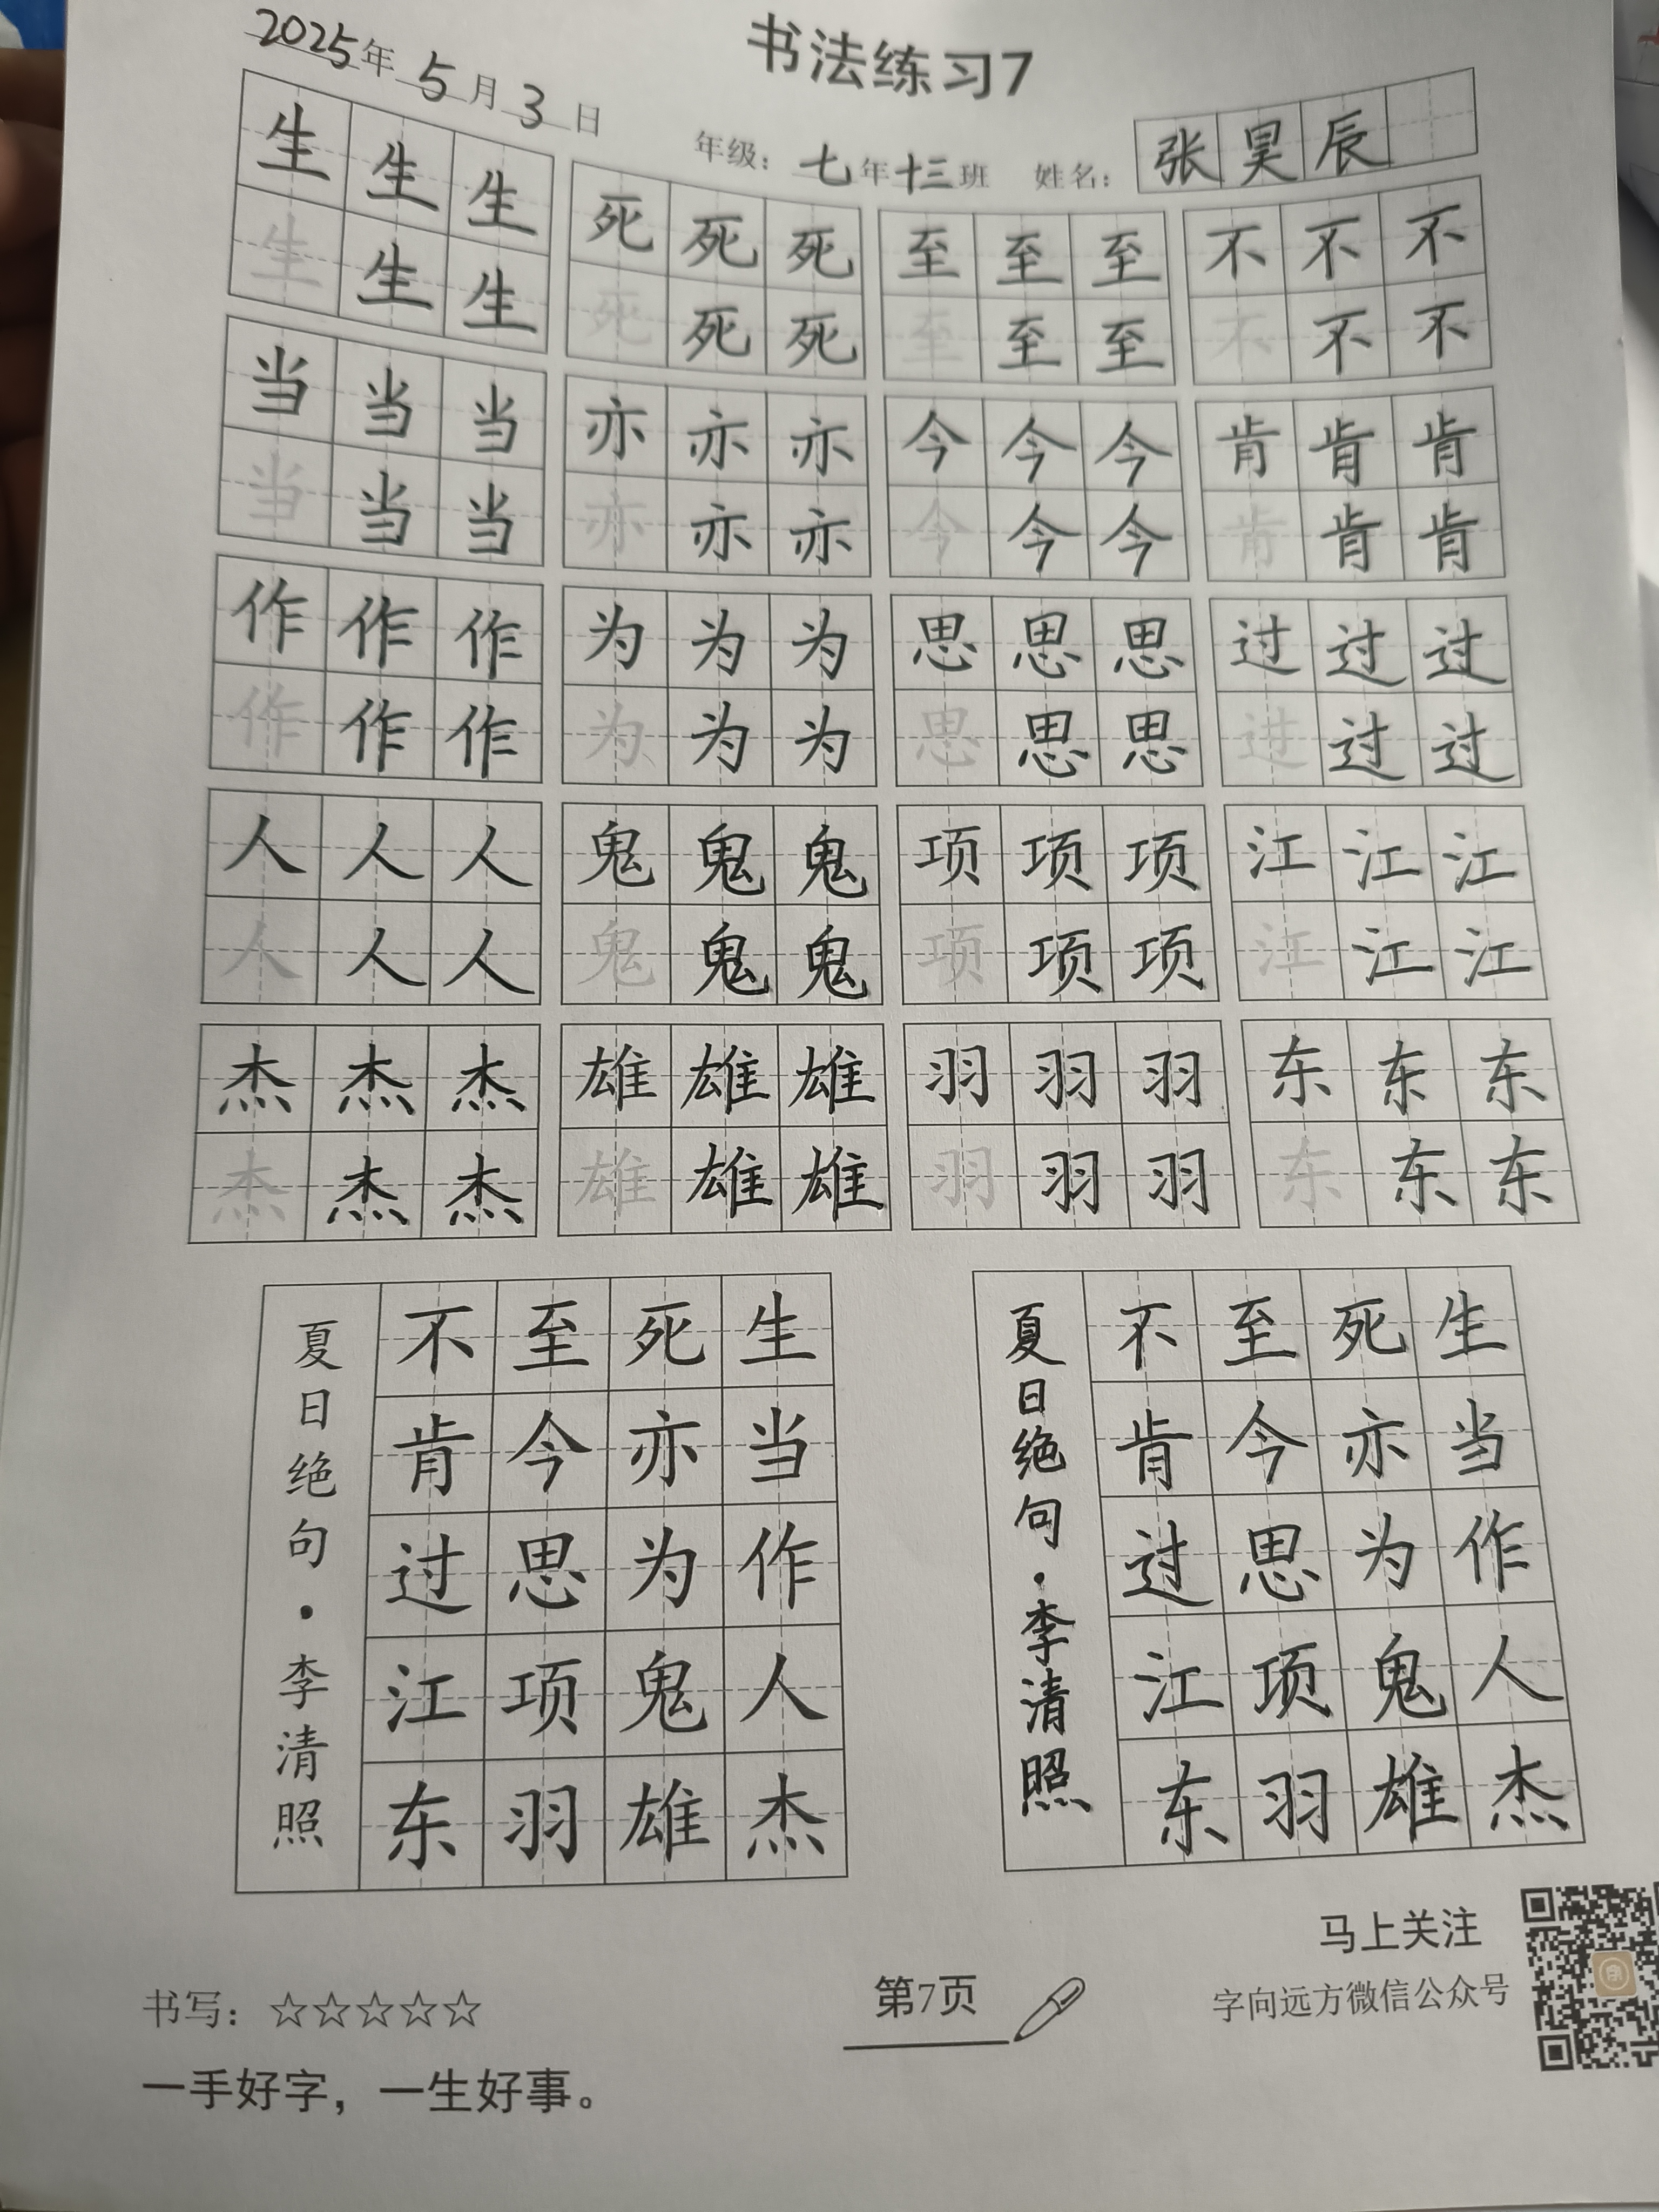 书法练习7
2025年5月3日
年级：七年十三班 姓名：张昊辰
生生生 死死死 至至至 不不不
生生生 死死死 至至至 不不不
当当当 亦亦亦 今今今 肯肯肯
当当当 亦亦亦 今今今 肯肯肯
作作作 为为为 思思思 过过过
作作作 为为为 思思思 过过过
人人人 鬼鬼鬼 项项项 江江江
人人人 鬼鬼鬼 项项项 江江江
杰杰杰 雄雄雄 羽羽羽 东东东
杰杰杰 雄雄雄 羽羽羽 东东东
生当作人杰
死亦为鬼雄
至今思项羽
不肯过江东
夏日绝句·李清照
生当作人杰
死亦为鬼雄
至今思项羽
不肯过江东
夏日绝句·李清照
马上关注
字向远方微信公众号
书写：☆☆☆☆☆
第7页
一手好字，一生好事。